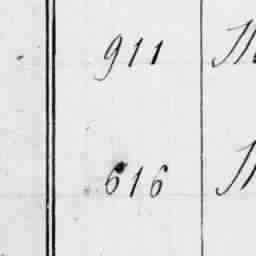 911
616